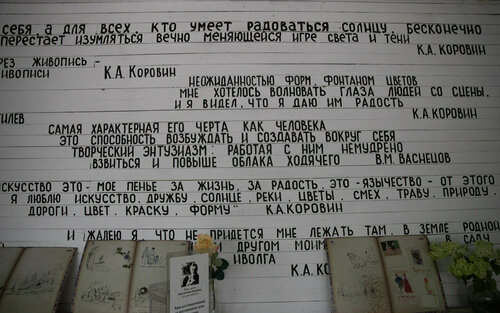 СЕБЯ, А ДЛЯ ВСЕХ, КТО УМЕЕТ РАДОВАТЬСЯ СОЛНЦУ, БЕСКОНЕЧНО
ПЕРЕСТАЕТ ИЗУМЛЯТЬСЯ ВЕЧНО МЕНЯЮЩЕЙСЯ ИГРЕ СВЕТА И ТЕНИ
К.А. КОРОВИН
РЕЗ ЖИВОПИСЬ,-
ИВОПИСИ К.А. КОРОВИН
НЕОЖИДАННОСТЬЮ ФОРМ, ФОНТАНОМ ЦВЕТОВ
МНЕ ХОТЕЛОСЬ ВОЛНОВАТЬ ГЛАЗА ЛЮДЕЙ СО СЦЕНЫ,
И Я ВИДЕЛ, ЧТО Я ДАЮ ИМ РАДОСТЬ
К.А. КОРОВИН
ГИЛЕВ
САМАЯ ХАРАКТЕРНАЯ ЕГО ЧЕРТА КАК ЧЕЛОВЕКА
ЭТО СПОСОБНОСТЬ ВОЗБУЖДАТЬ И СОЗДАВАТЬ ВОКРУГ СЕБЯ
ТВОРЧЕСКИЙ ЭНТУЗИАЗМ: РАБОТАЯ С НИМ НЕМУДРЕНО
ВЗВИТЬСЯ И ПОВЫШЕ ОБЛАКА ХОДЯЧЕГО В.М. ВАСНЕЦОВ
ИСКУССТВО ЭТО - МОЕ ПЕНЬЕ ЗА ЖИЗНЬ, ЗА РАДОСТЬ, ЭТО - ЯЗЫЧЕСТВО - ОТ ЭТОГО
Я ЛЮБЛЮ ИСКУССТВО, ДРУЖБУ, СОЛНЦЕ, РЕКИ, ЦВЕТЫ, СМЕХ, ТРАВУ, ПРИРОДУ,
ДОРОГИ, ЦВЕТ, КРАСКУ, ФОРМУ" К.А.КОРОВИН
И ЖАЛЕЮ Я, ЧТО НЕ ПРИДЕТСЯ МНЕ ЛЕЖАТЬ ТАМ, В ЗЕМЛЕ РОДНОЙ
И ДРУГОМ МОИМ В САДУ
ИВОЛГА
К.А. КО